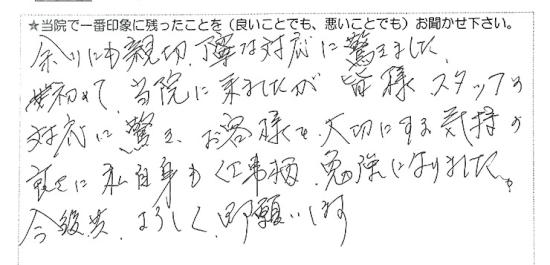 ★当院で一番印象に残ったことを（良いことでも、悪いことでも）お聞かせ下さい。
余りにも親切、丁寧な対応に驚きました。
初めて、当院に来ましたが 皆様 スタッフの
対応に驚き、お客様を、大切にする気持の
に 私自身も 仕事柄、勉強になりました。
今後共、よろしく、御願いします